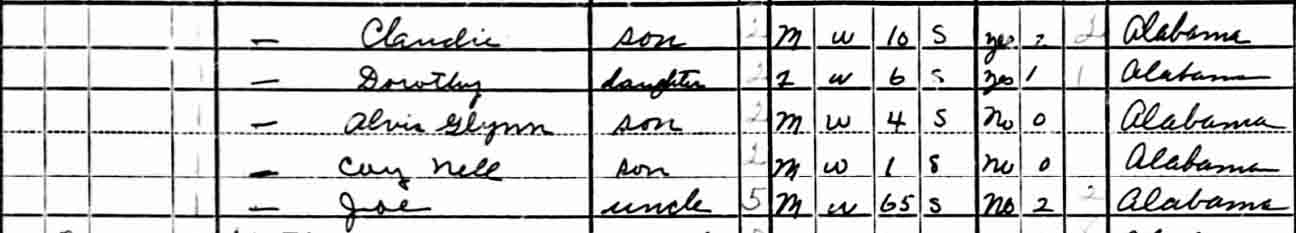 — Claudie son 2 M W 10 S yes 2 2 Alabama
— Dorothy daughter 2 F W 6 S yes 1 1 Alabama
— Alvis Glynn son 2 M W 4 S No 0 Alabama
— Coy Nell son 2 M W 1 S No 0 Alabama
— Joe uncle 5 M W 65 S No 2 2 Alabama